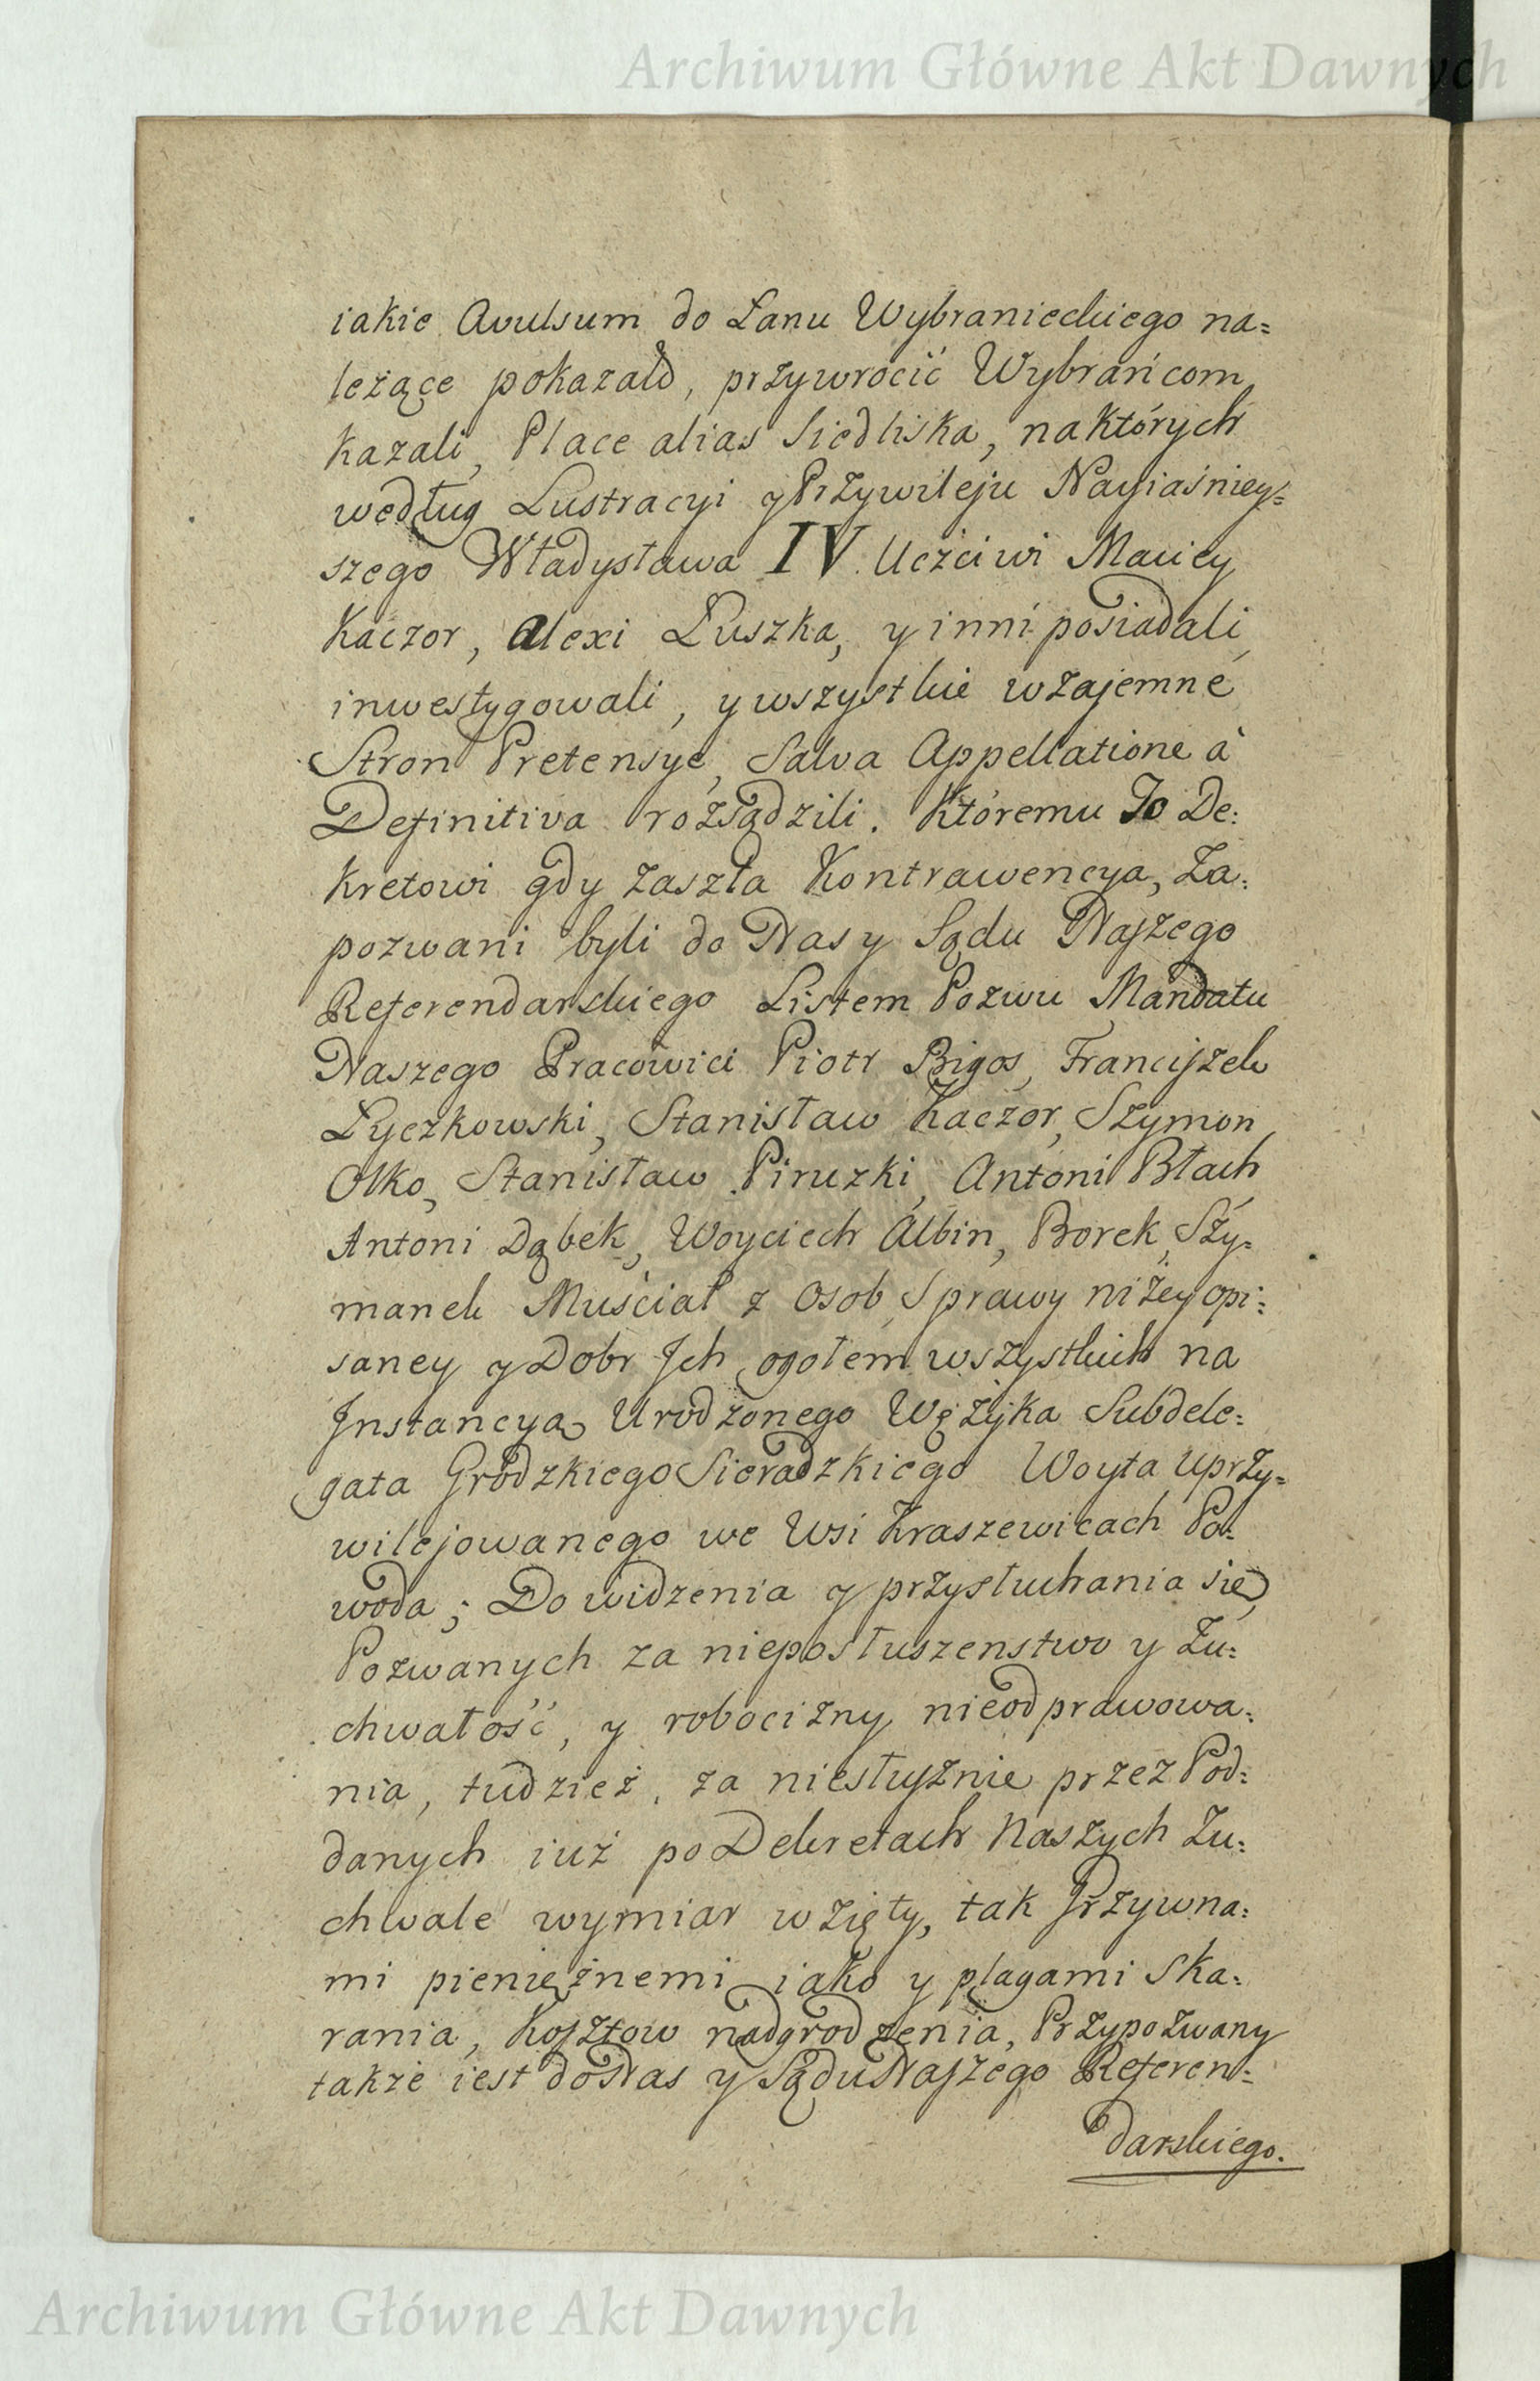 Archiwum Główne Akt Dawnych
iakie Avulsum do Łanu Wybranieckiego na=
leżące pokazało, przywrócić Wybrańcom
kazali, Place alias Siedliska, na których
według Lustracyi y Przywileju Nayiaśniey=
szego Władysława IV. Uczciwi Maciey
Kaczor, Alexi Łuszka, y inni posiadali,
inwestygowali, y wszystkie wzajemne
Stron Pretensye, Salva Appellatione à
Definitiva rozsądzili. Któremu To De:
kretowi gdy zaszła Kontrawencya, Za:
pozwani byli do Nas y Sądu Naszego
Referendarskiego Listem Pozwu Mandatu
Naszego Pracowici Piotr Bigos, Franciszek
Łyczkowski, Stanisław Kaczor, Szymon
Olko, Stanisław Piruzki, Antoni Błach
Antoni Dąbek, Woyciech Albin, Borek, Szy=
manek Muściał z Osob, Sprawy niżey opi=
saney y Dobr Jch ogołem wszystkich na
Jnstancyą Urodzonego Wężyka Subdele=
gata Grodzkiego Sieradzkiego Woyta uprzy=
wilejowanego we Wsi Kraszewicach Po=
woda; Do widzenia y przysłuchania się,
Pozwanych za nieposłuszenstwo y Zu=
chwałość, y robocizny nieodprawowa:
nia, tudzież, za niesłusznie przez Pod=
danych iuż po Dekretach Naszych Zu:
chwale wymiar wzięty, tak Grzywna:
mi pieniężnemi iako y plagami ska:
rania, kosztow nadgrodzenia, Przypozwany
także iest do Nas y Sądu Naszego Referen=
darskiego.
Archiwum Główne Akt Dawnych